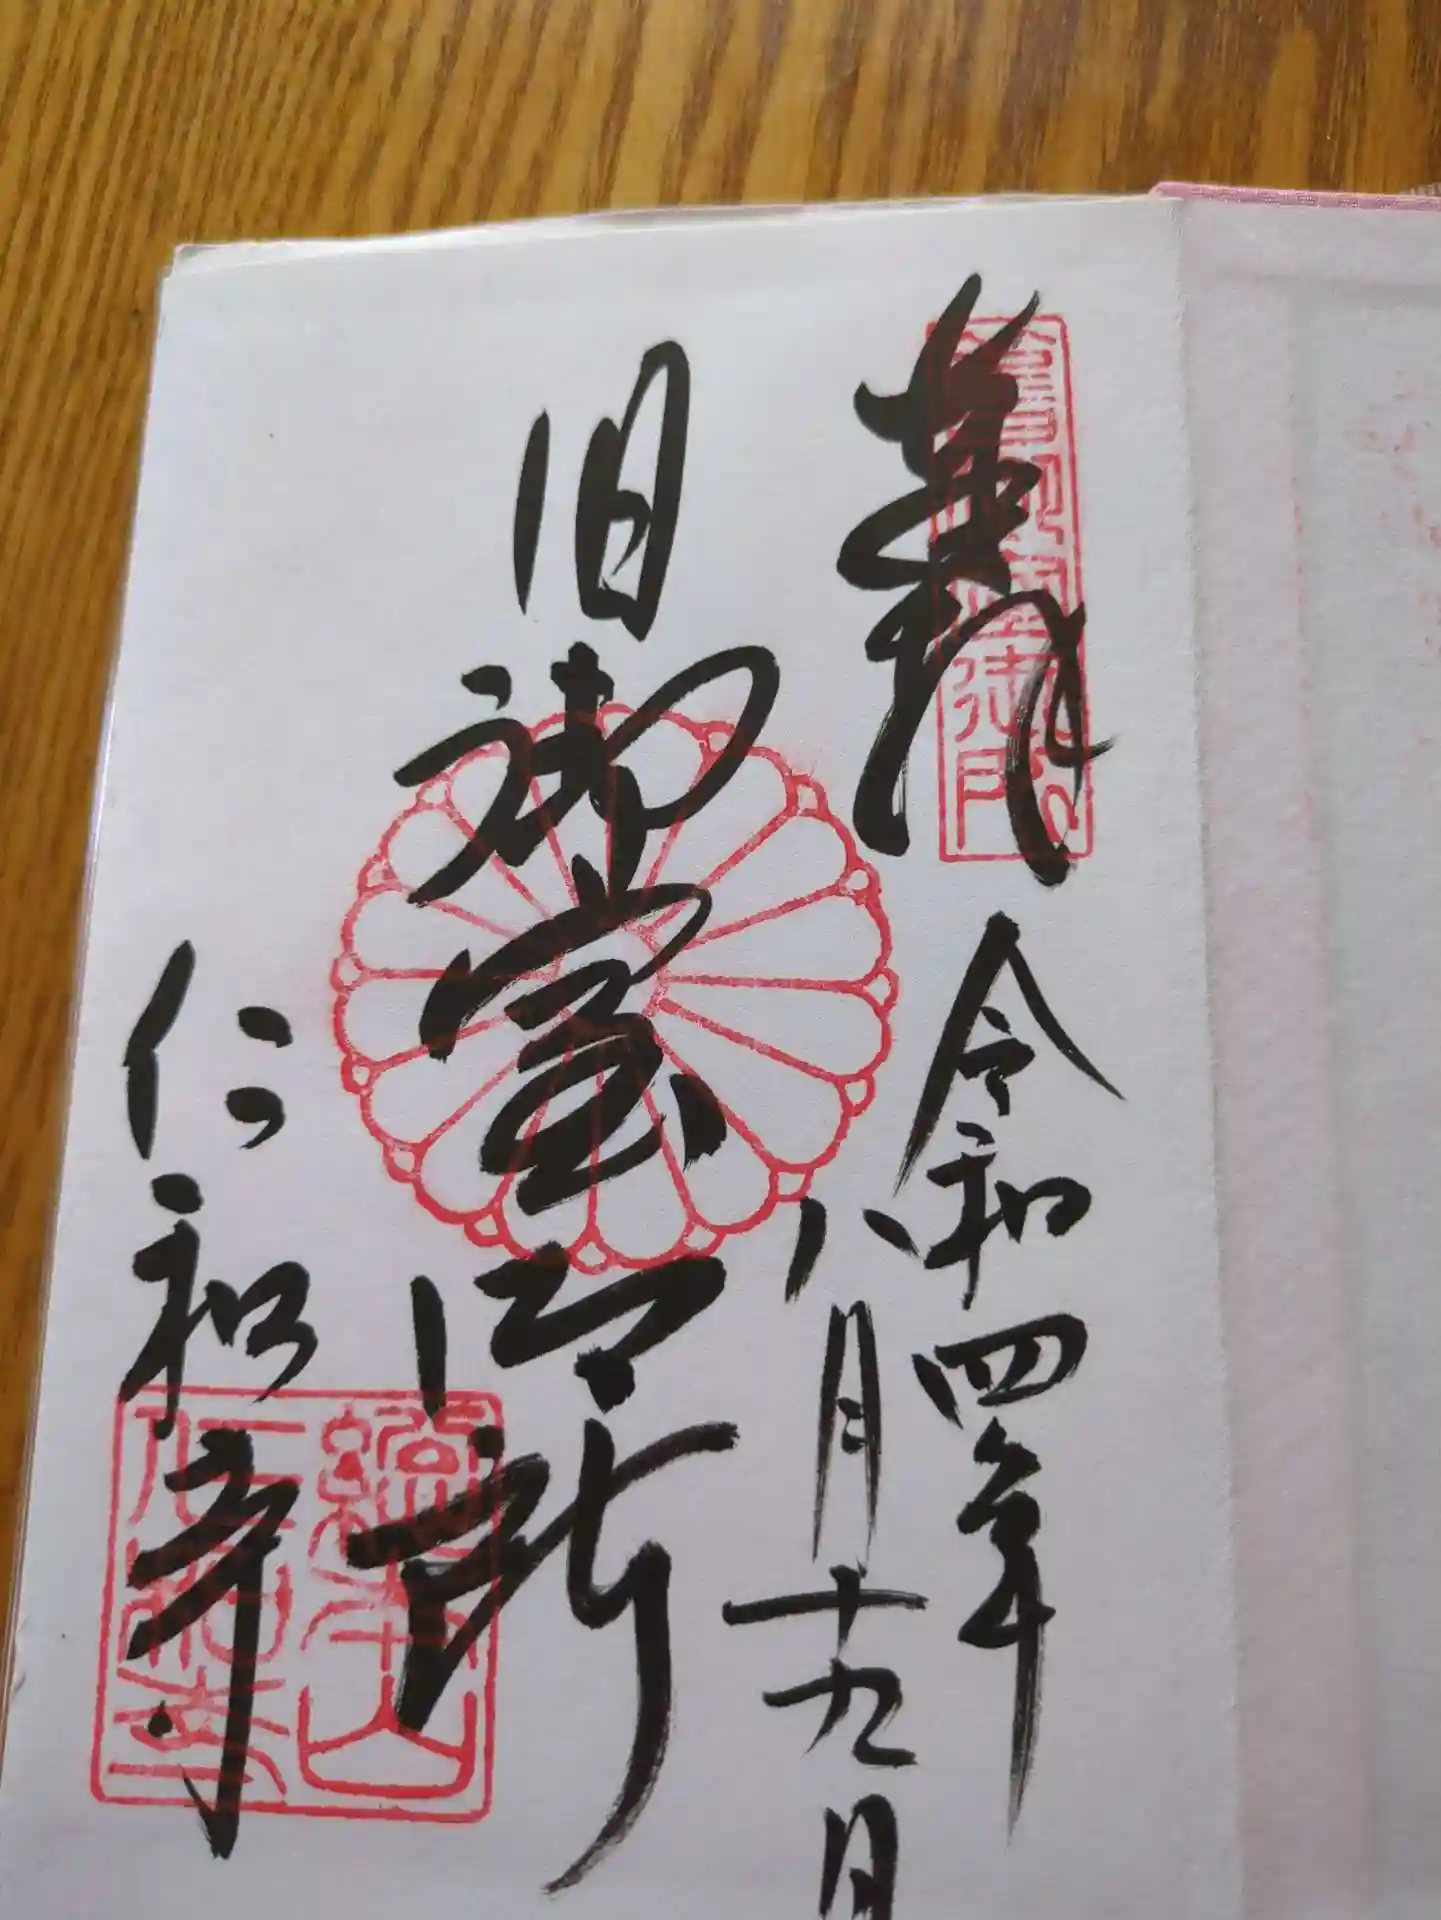 奉拝
令和四年
八月十九日
旧御室御所
仁和寺
總本山
仁和寺